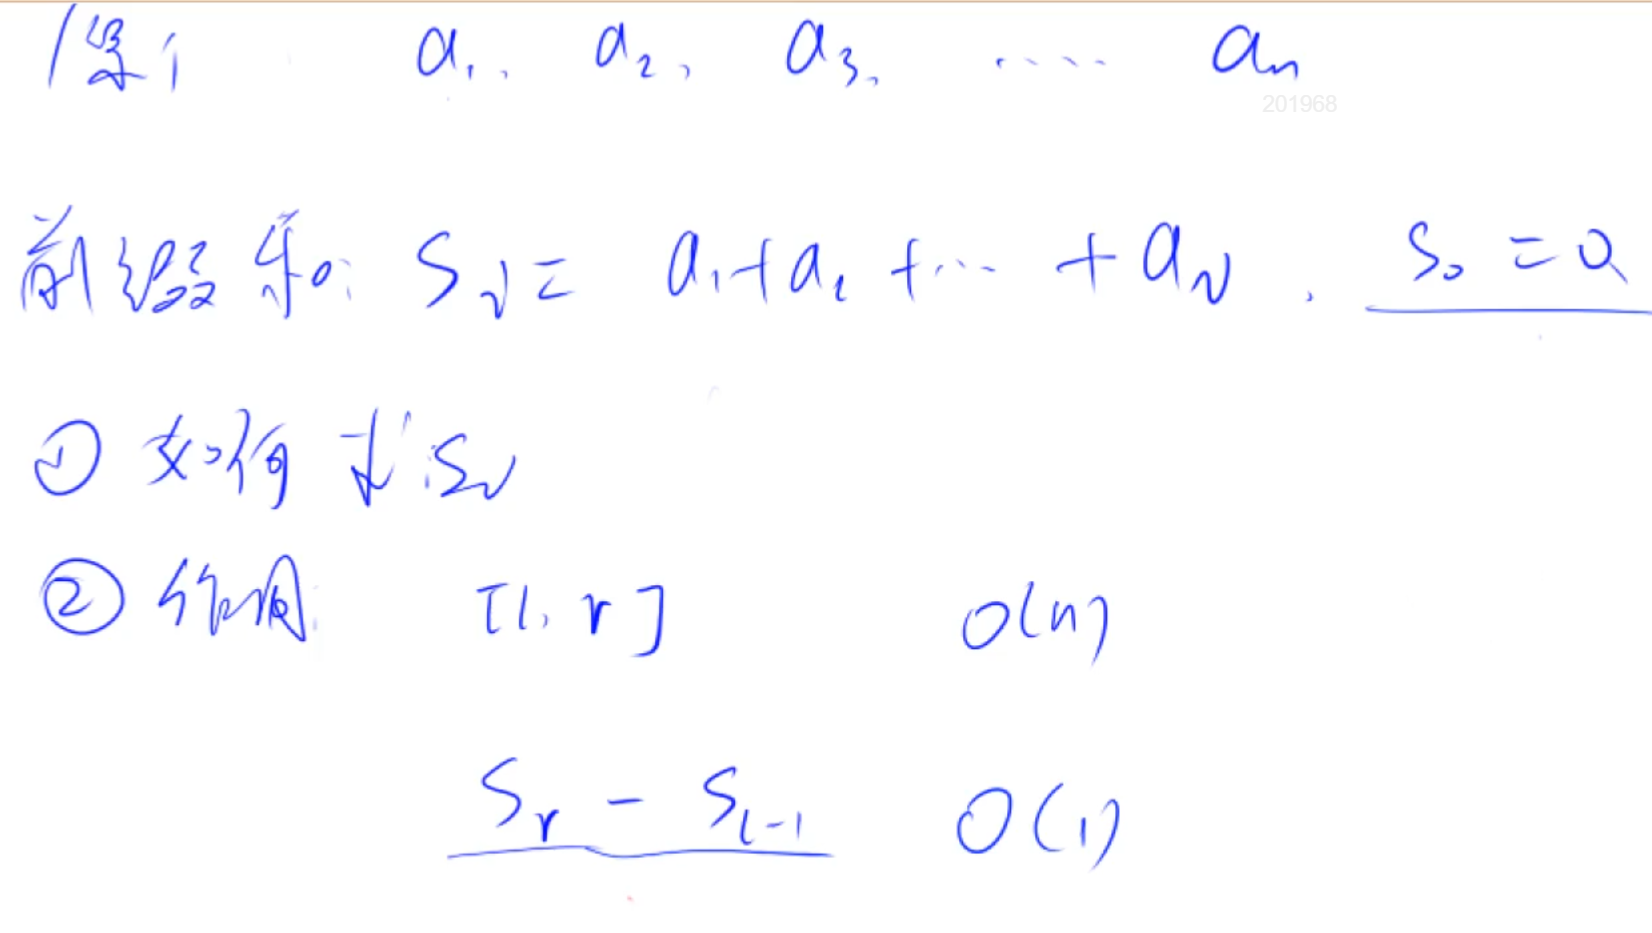 a₁, a₂, a₃, ..... aₙ
201968
前缀和: Sᵢ = a₁+a₂+...+aᵢ. S₀=0
① 如何求Sᵢ
② 作用: [l, r] O(n)
Sᵣ - Sₗ₋₁ O(1)